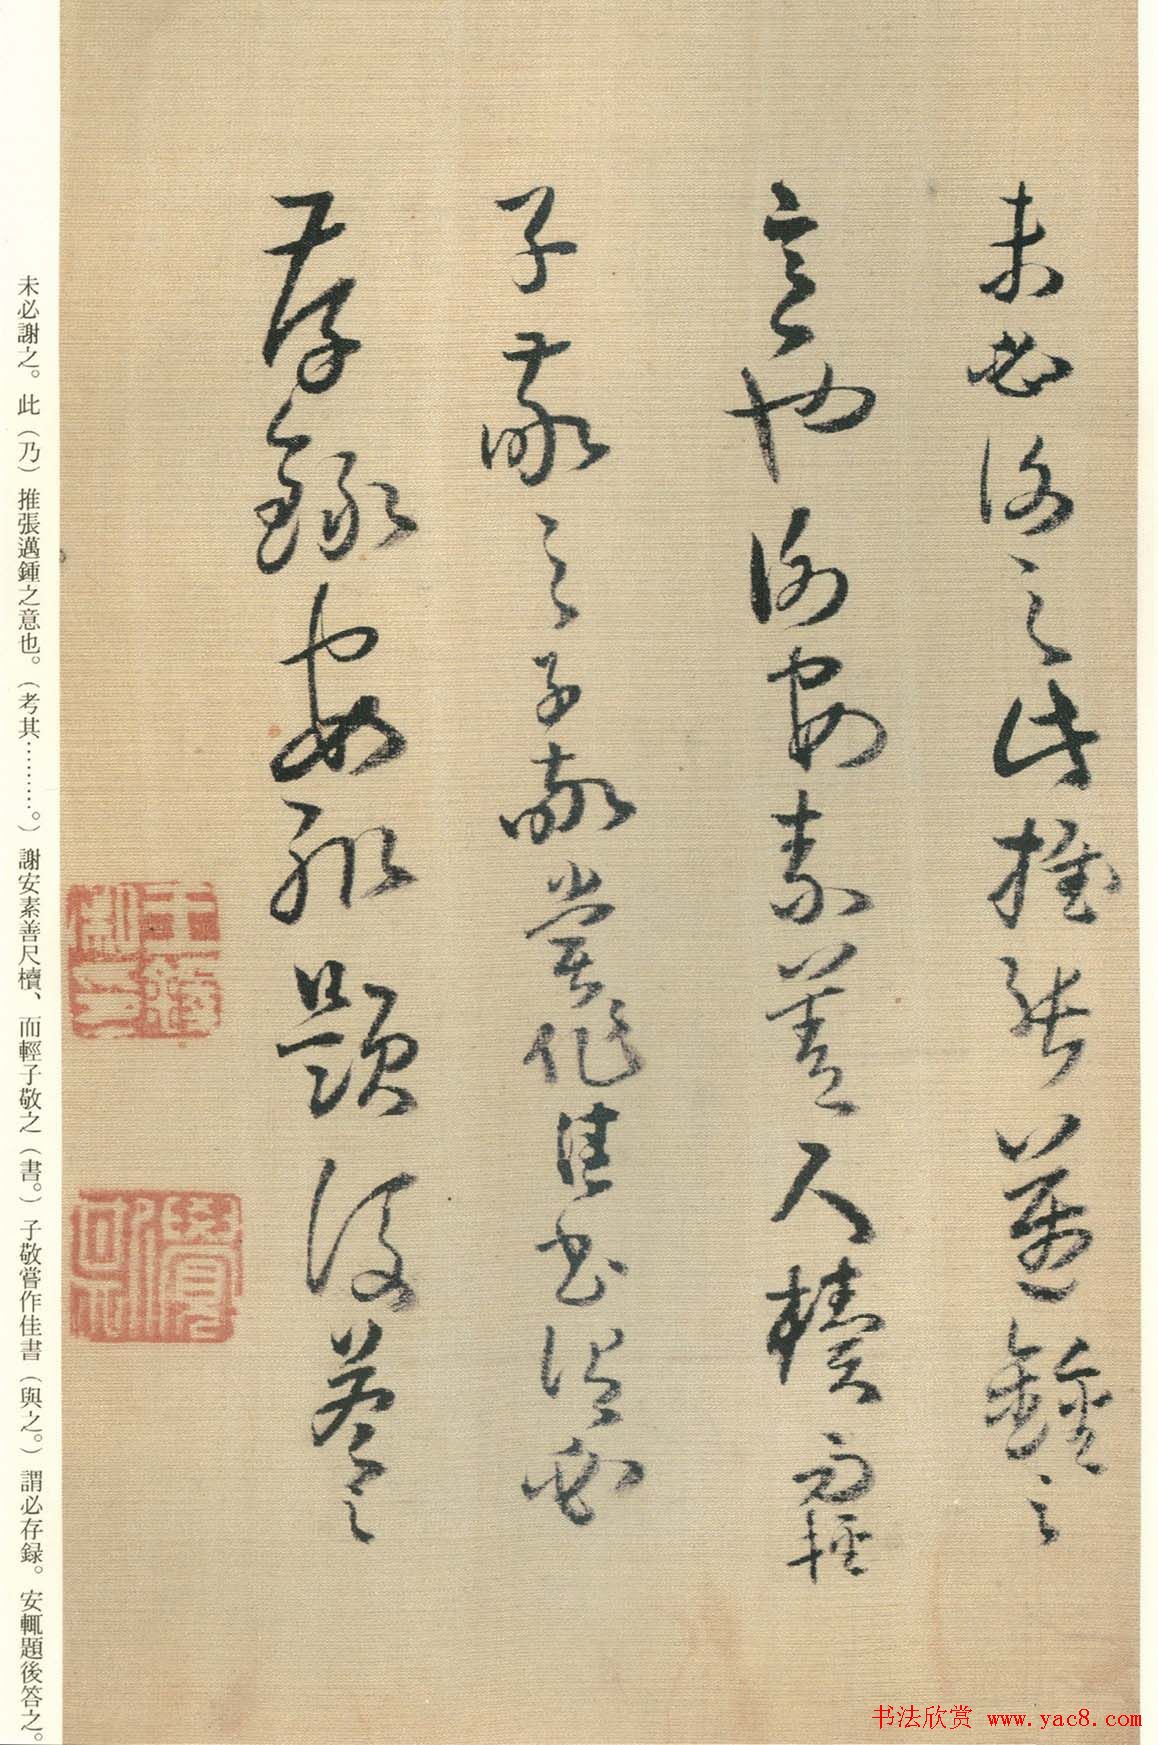 未必謝之此推張邁鍾之
意也謝安素善尺牘而輕
子敬之子敬嘗作佳書謂必
存錄安輒題後答之
王鐸
之印
未必謝之。此（乃）推張邁鍾之意也。（考其………。）謝安素善尺牘、而輕子敬之（書。）子敬嘗作佳書（與之。）謂必存録。安輒題後答之。
书法欣赏 www.yac8.com